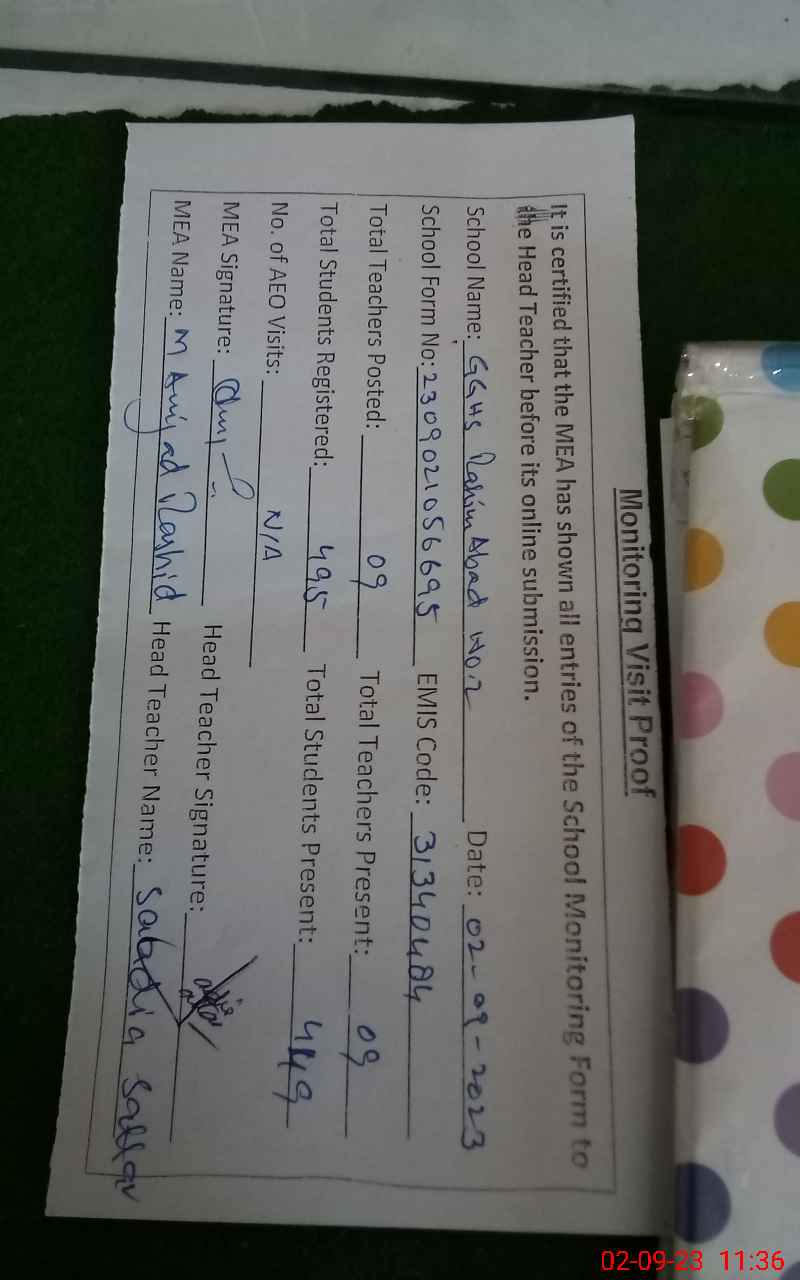 Monitoring Visit Proof
It is certified that the MEA has shown all entries of the School Monitoring Form to
the Head Teacher before its online submission.
School Name: GGHS Rahim Abad No.2 Date: 02-09-2023
School Form No: 2309021056695 EMIS Code: 31340404
Total Teachers Posted: 09 Total Teachers Present: 09
Total Students Registered: 495 Total Students Present: 449
No. of AEO Visits: N/A
MEA Signature: Head Teacher Signature:
MEA Name: M Amjad Rashid Head Teacher Name: Sabdia Sattar
02-09-23 11:36